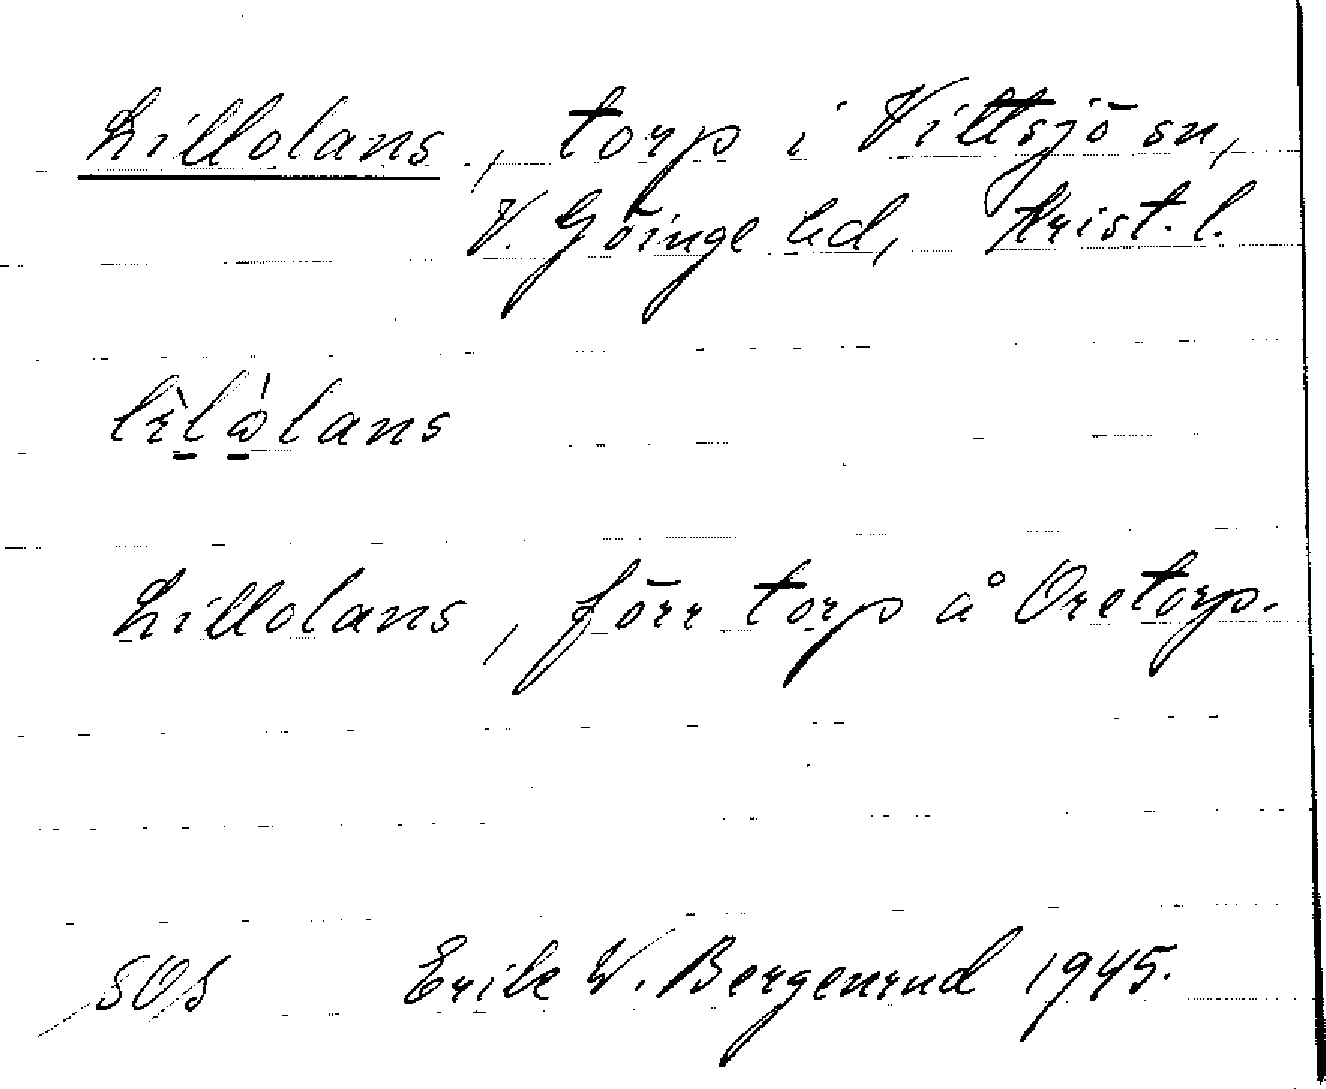 Lillolans, torp i Vittsjö sn,
V. Göinge hd, Krist. l.
Lillolans, förr torp å Oretorp.
Erik W. Bergenrud 1945.